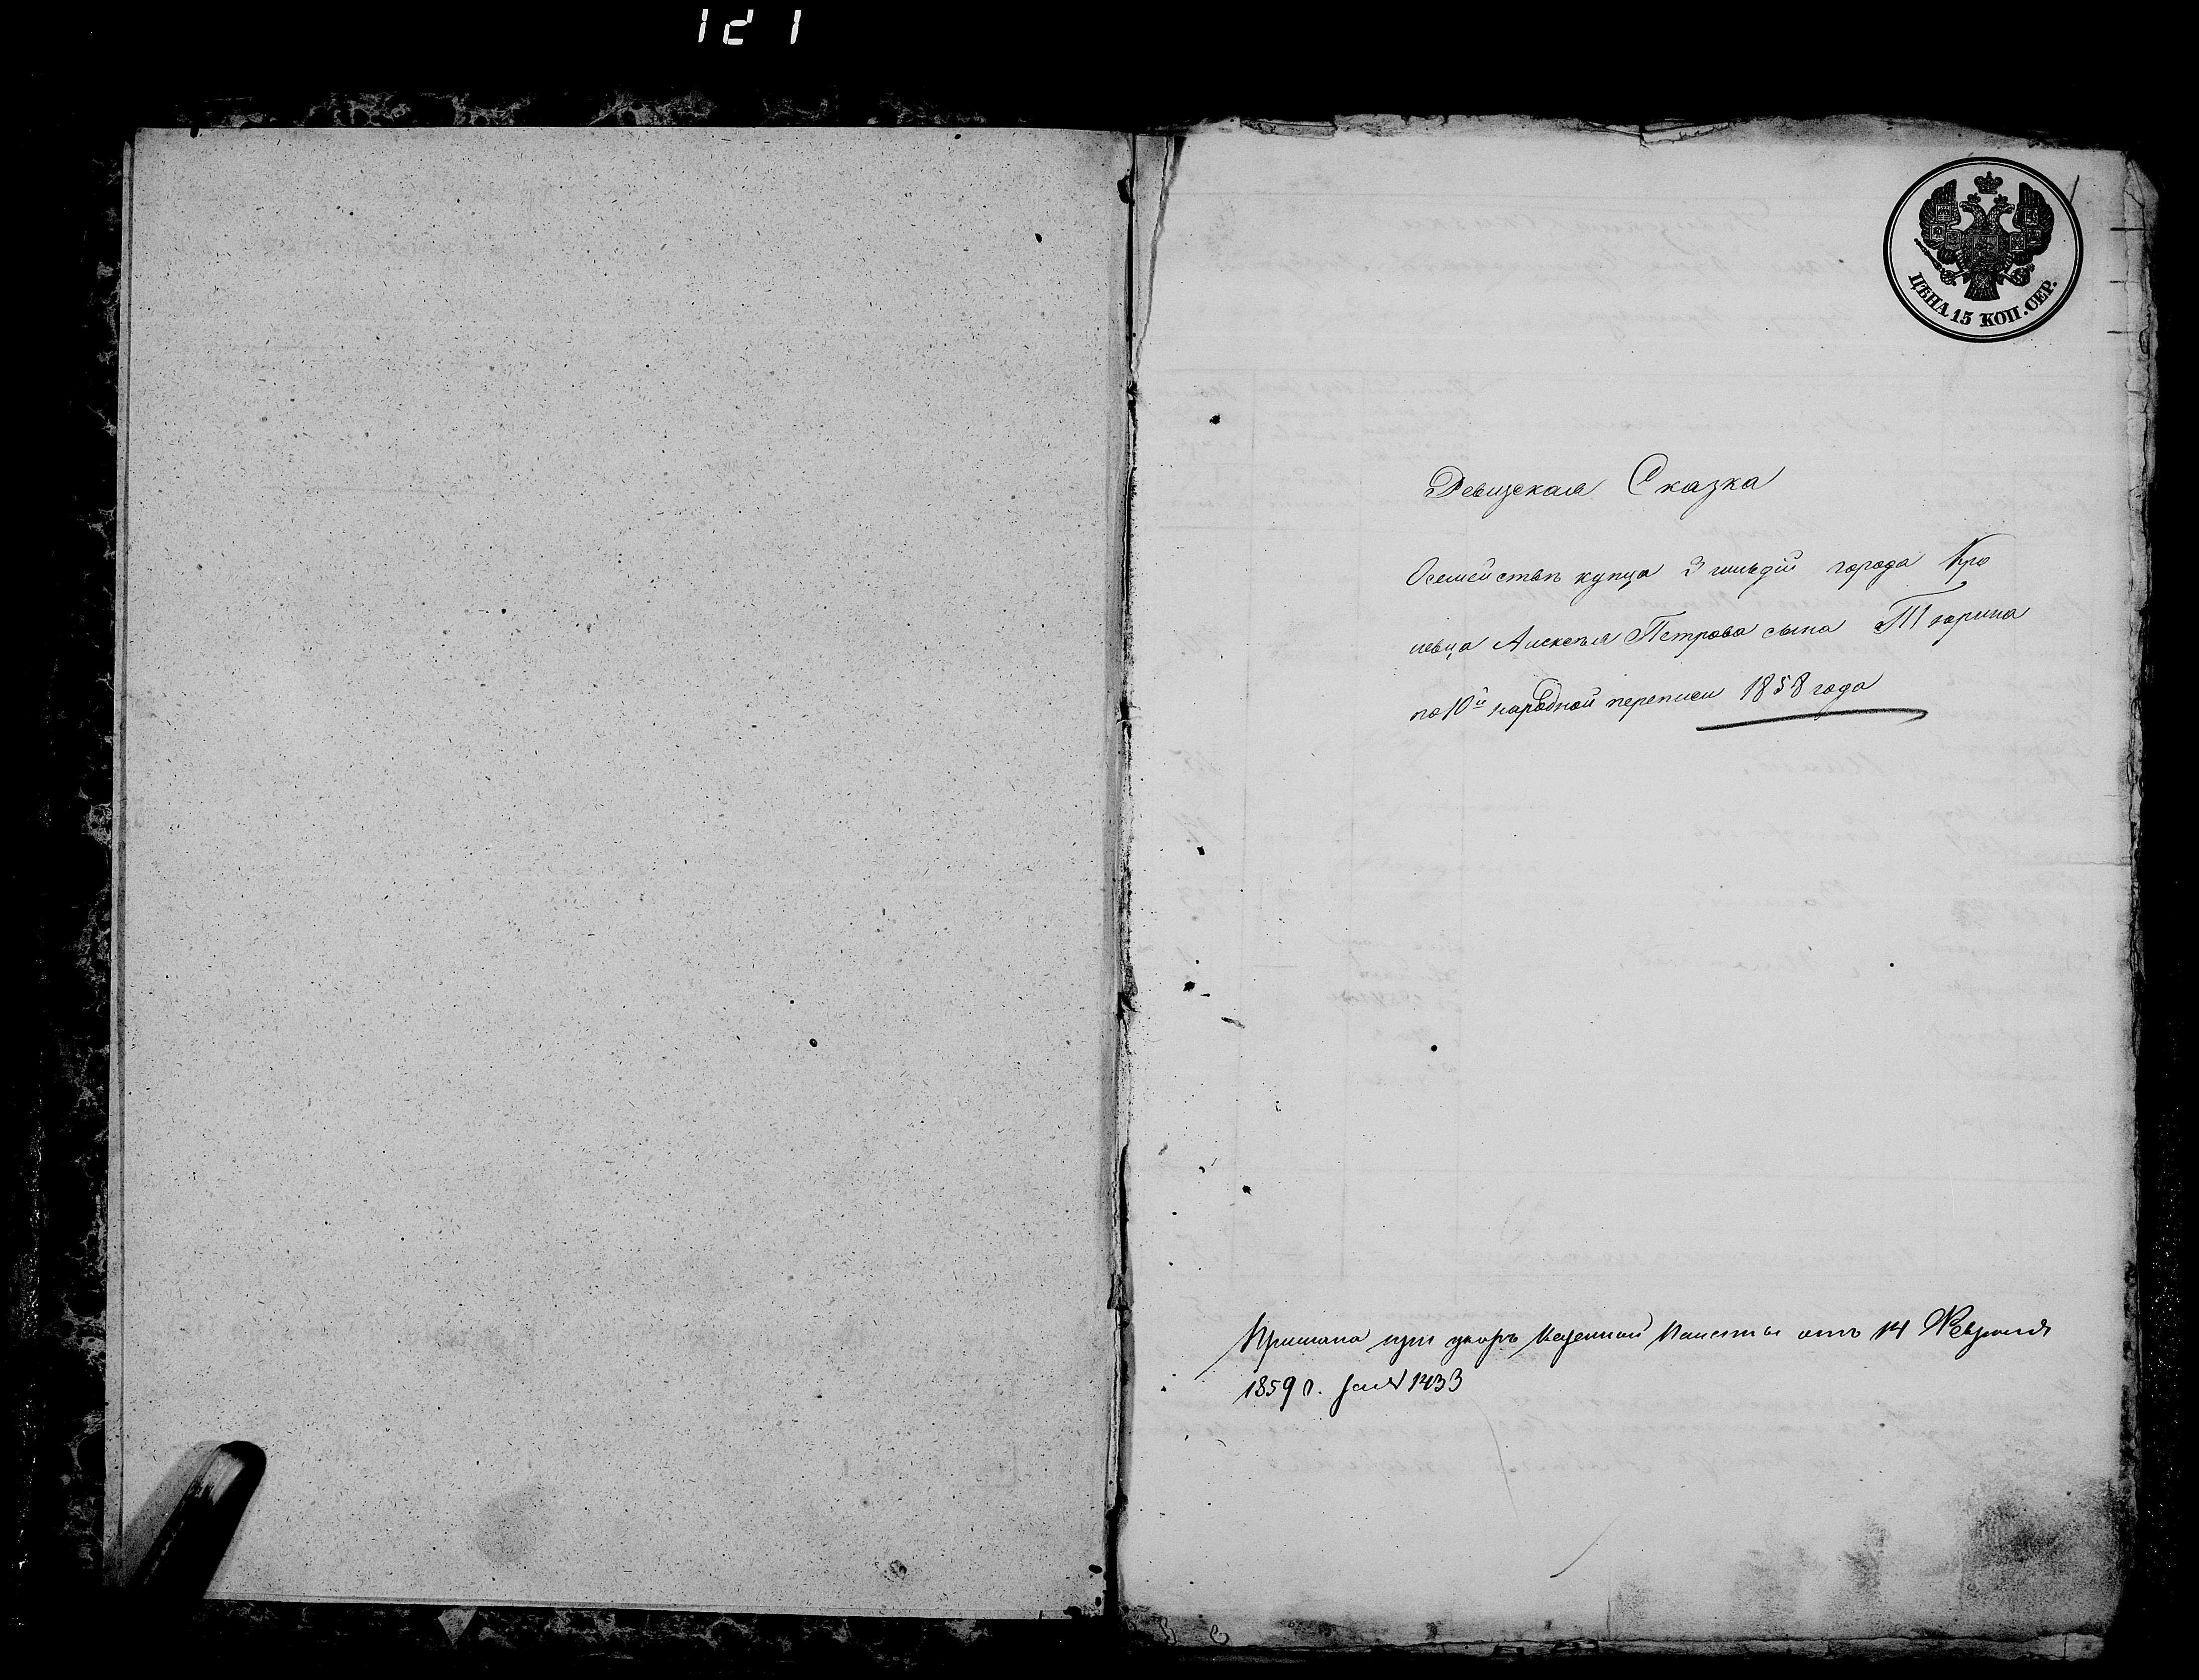 121
ЦѢНА 15 КОП. СЕР.
Ревизская Сказка
Осемействѣ купца 3 гильдіи города Кро
левца Алексѣя Петрова сына Тюрина
по 10й народной переписи 1858 года
Прислана при указѣ Казенной Палаты отъ 14 Февраля
1859 г. за № 1433